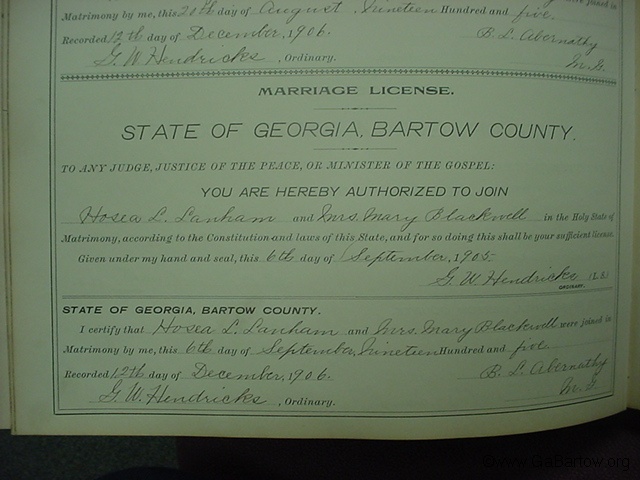 Matrimony by me, this 20th day of August, Nineteen Hundred and five.
Recorded 12th day of December, 1906. B. L. Abernathy
G. W. Hendricks, Ordinary. M. G.
MARRIAGE LICENSE.
STATE OF GEORGIA, BARTOW COUNTY.
TO ANY JUDGE, JUSTICE OF THE PEACE, OR MINISTER OF THE GOSPEL:
YOU ARE HEREBY AUTHORIZED TO JOIN
Hosea L. Lanham and Mrs. Mary Blackwell in the Holy State of
Matrimony, according to the Constitution and laws of this State, and for so doing this shall be your sufficient license.
Given under my hand and seal, this 6th day of September, 1905.
G. W. Hendricks (L.S.)
ORDINARY.
STATE OF GEORGIA, BARTOW COUNTY.
I certify that Hosea L. Lanham and Mrs. Mary Blackwell were joined in
Matrimony by me, this 6th day of September, Nineteen Hundred and five.
Recorded 12th day of December, 1906. B. L. Abernathy
G. W. Hendricks, Ordinary. M. G.
©www.GaBartow.org